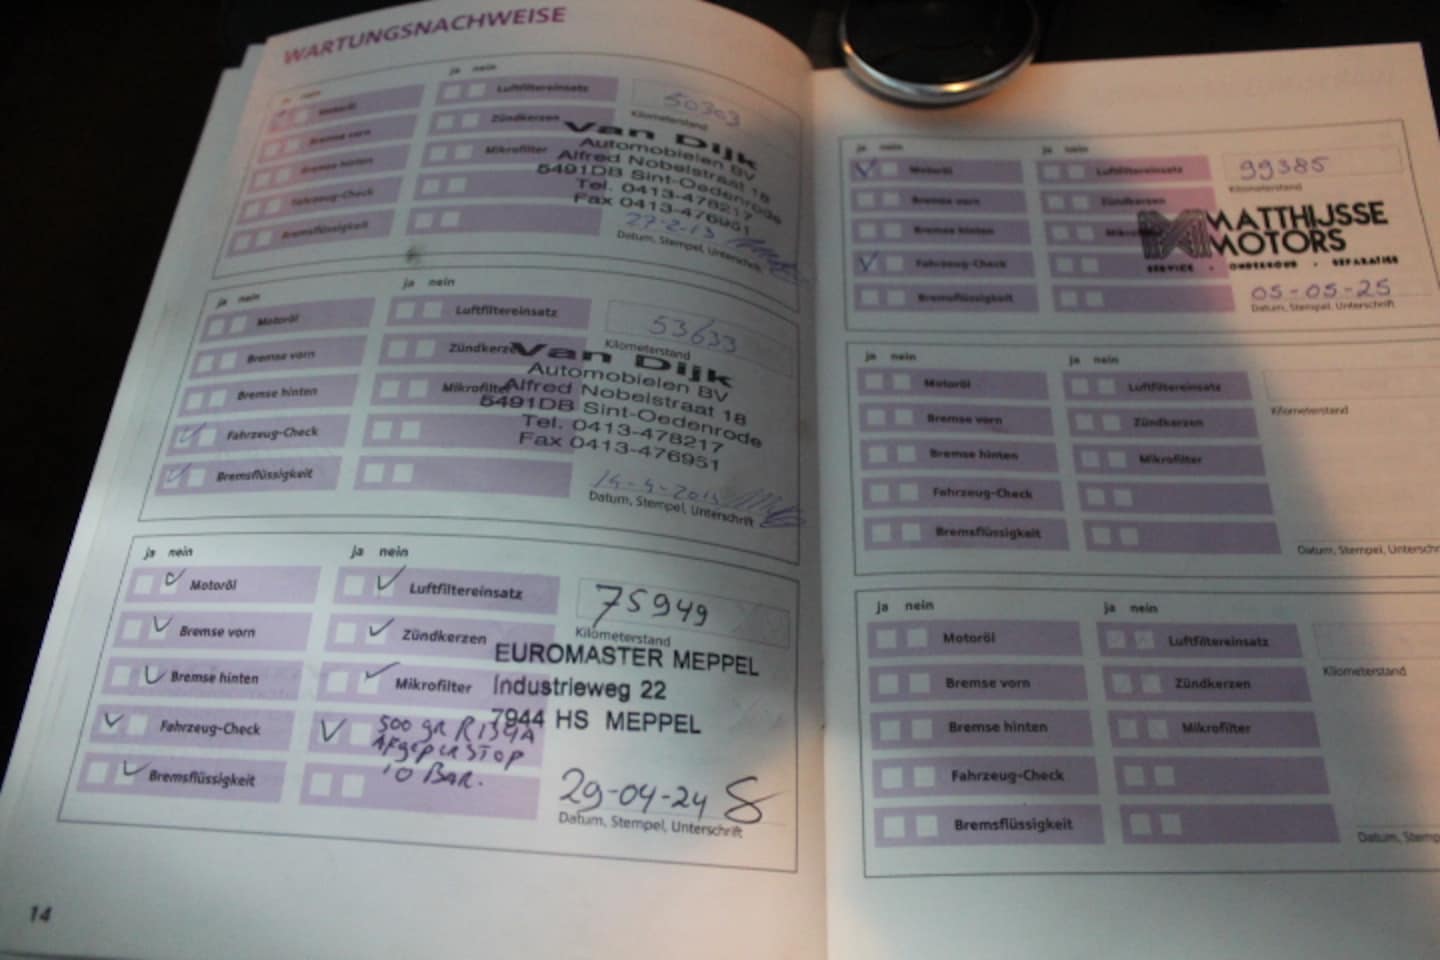 WARTUNGSNACHWEISE
ja nein
Motoröl
Bremse vorn
Bremse hinten
Fahrzeug-Check
Bremsflüssigkeit
ja nein
Luftfiltereinsatz
Zündkerzen
Mikrofilter
50303
Kilometerstand
Van Dijk
Automobielen BV
Alfred Nobelstraat 18
5491DB Sint-Oedenrode
Tel. 0413-478217
Fax 0413-476951
27-2-13
Datum, Stempel, Unterschrift
ja nein
Motoröl
Bremse vorn
Bremse hinten
Fahrzeug-Check
Bremsflüssigkeit
ja nein
Luftfiltereinsatz
Zündkerzen
Mikrofilter
53633
Kilometerstand
Van Dijk
Automobielen BV
Alfred Nobelstraat 18
5491DB Sint-Oedenrode
Tel. 0413-478217
Fax 0413-476951
Datum, Stempel, Unterschrift
ja nein
Motoröl
Bremse vorn
Bremse hinten
Fahrzeug-Check
Bremsflüssigkeit
ja nein
Luftfiltereinsatz
Zündkerzen
Mikrofilter
500 gR R134A
AFgepERSTOP
10 BAR.
75949
Kilometerstand
EUROMASTER MEPPEL
Industrieweg 22
7944 HS MEPPEL
29-04-24
Datum, Stempel, Unterschrift
14
ja nein
Motoröl
Bremse vorn
Bremse hinten
Fahrzeug-Check
Bremsflüssigkeit
ja nein
Luftfiltereinsatz
Zündkerzen
99385
Kilometerstand
MATTHIJSSE
MOTORS
SERVICE · ONDERHOUD · REPARATIES
05-05-25
Datum, Stempel, Unterschrift
ja nein
Motoröl
Bremse vorn
Bremse hinten
Fahrzeug-Check
Bremsflüssigkeit
ja nein
Luftfiltereinsatz
Zündkerzen
Mikrofilter
Kilometerstand
Datum, Stempel, Unterschr
ja nein
Motoröl
Bremse vorn
Bremse hinten
Fahrzeug-Check
Bremsflüssigkeit
ja nein
Luftfiltereinsatz
Zündkerzen
Mikrofilter
Kilometerstand
Datum, Stemp